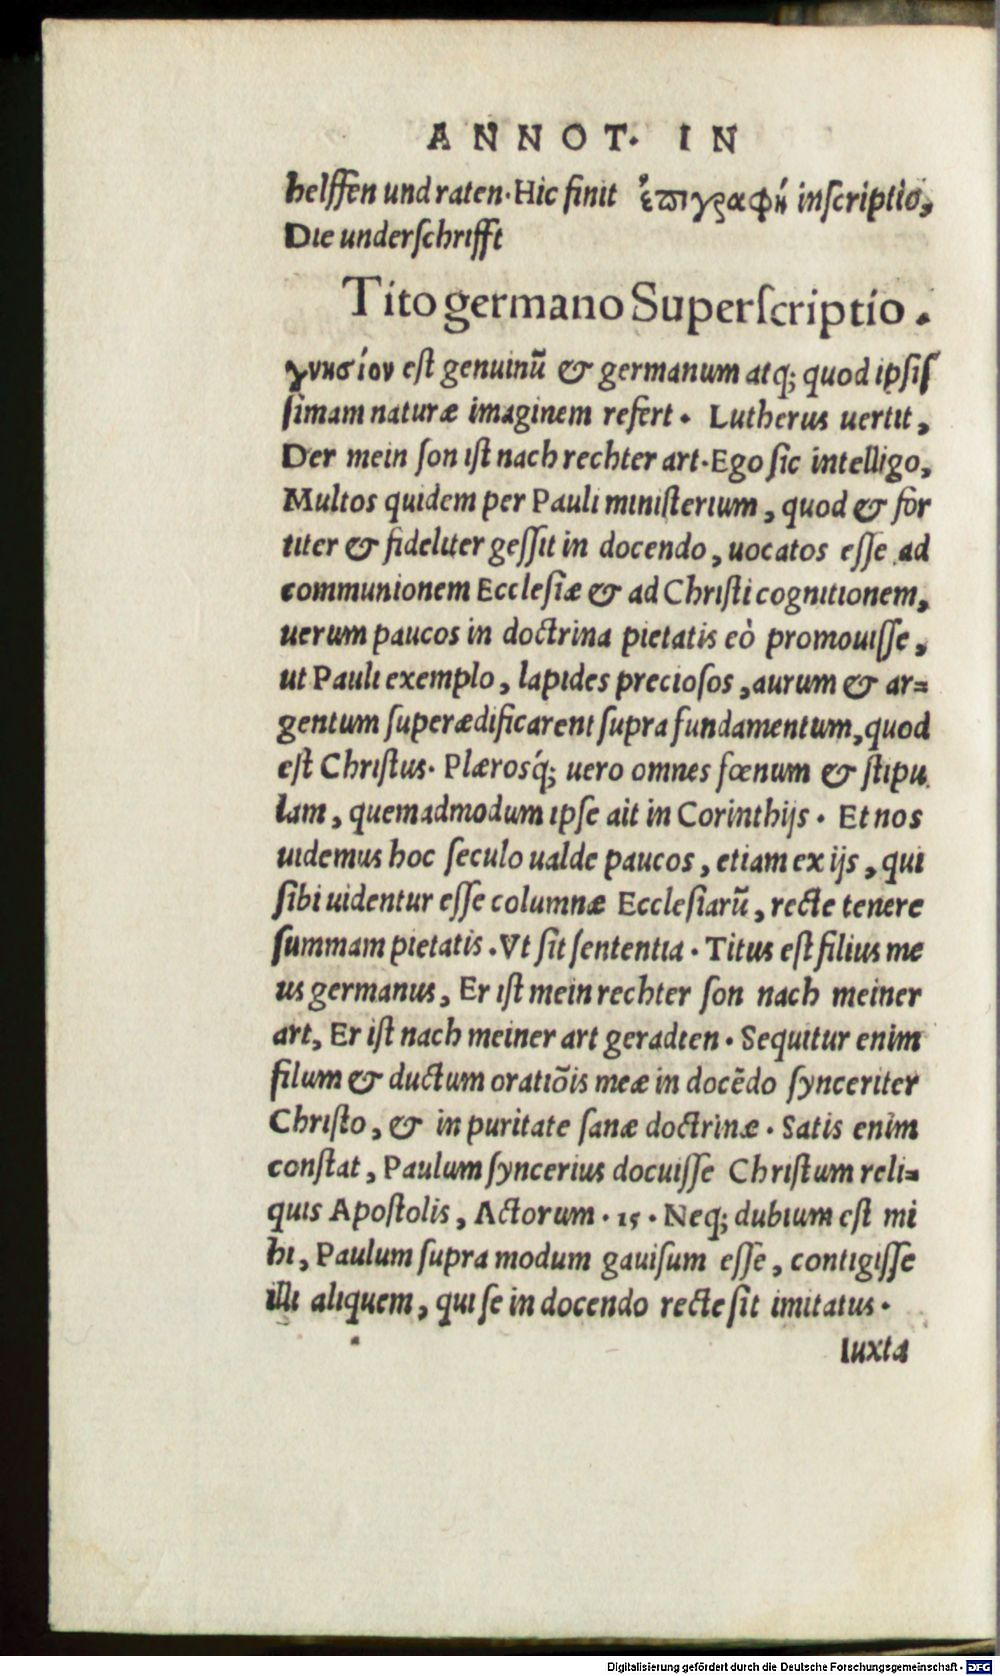 ANNOT. IN
helffen und raten. Hic finit ἐπιγραφή inſcriptio,
Die underſchrifft
Tito germano Superſcriptio.
γνησίον eſt genuinũ & germanum atq; quod ipſiſ
ſimam naturæ imaginem refert. Lutherus uertit,
Der mein ſon iſt nach rechter art. Ego ſic intelligo,
Multos quidem per Pauli miniſterium, quod & for
titer & fideliter geſſit in docendo, uocatos eſſe ad
communionem Eccleſiæ & ad Chriſti cognitionem,
uerum paucos in doctrina pietatis eò promouiſſe,
ut Pauli exemplo, lapides precioſos, aurum & ar=
gentum ſuperædificarent ſupra fundamentum, quod
eſt Chriſtus. Plæroſq́; uero omnes fœnum & ſtipu
lam, quemadmodum ipſe ait in Corinthijs. Et nos
uidemus hoc ſeculo ualde paucos, etiam ex ijs, qui
ſibi uidentur eſſe columnæ Eccleſiarũ, recte tenere
ſummam pietatis. Vt ſit ſententia. Titus eſt filius me
us germanus, Er iſt mein rechter ſon nach meiner
art, Er iſt nach meiner art geradten. Sequitur enim
filum & ductum oratiõis meæ in docẽdo ſynceriter
Chriſto, & in puritate ſanæ doctrinæ. Satis enim
conſtat, Paulum ſyncerius docuiſſe Chriſtum reli=
quis Apoſtolis, Actorum. 15. Neq; dubium eſt mi
hi, Paulum ſupra modum gauiſum eſſe, contigiſſe
illi aliquem, qui ſe in docendo recte ſit imitatus.
Iuxta
Digitalisierung gefördert durch die Deutsche Forschungsgemeinschaft - DFG